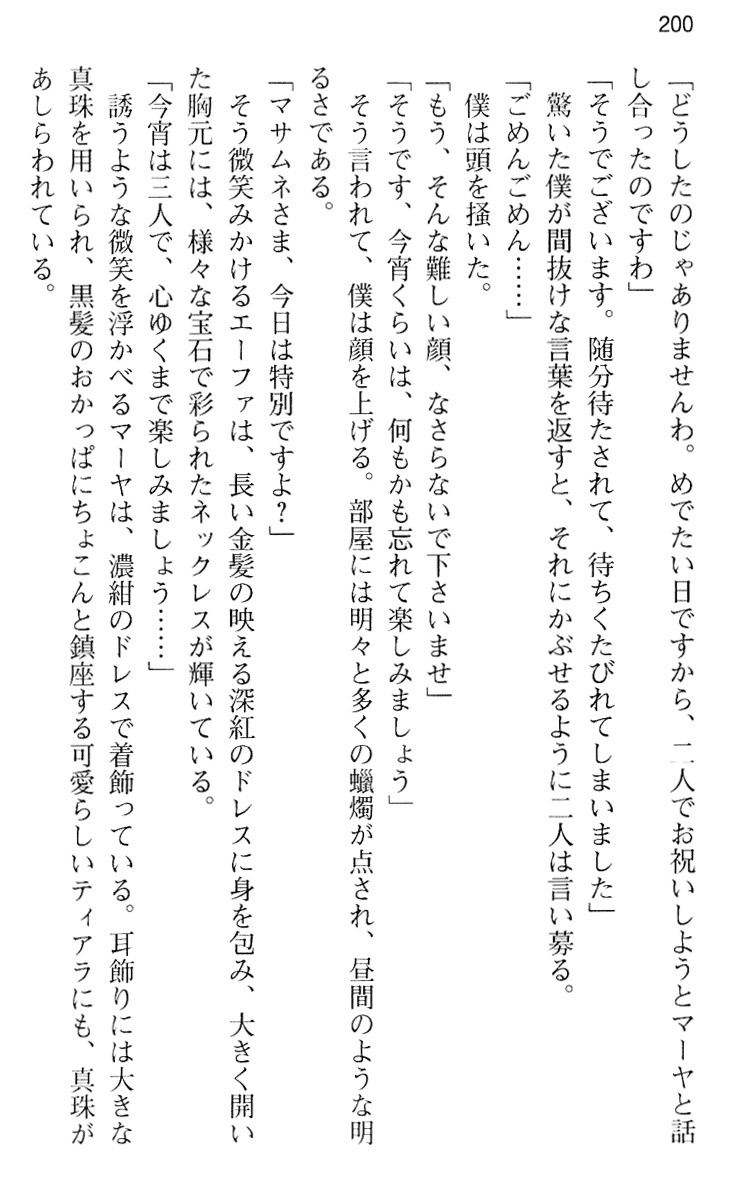 200
「どうしたのじゃありませんわ。めでたい日ですから、二人でお祝いしようとマーヤと話
し合ったのですわ」
「そうでございます。随分待たされて、待ちくたびれてしまいました」
驚いた僕が間抜けな言葉を返すと、それにかぶせるように二人は言い募る。
「ごめんごめん……」
僕は頭を掻いた。
「もう、そんな難しい顔、なさらないで下さいませ」
「そうです、今宵くらいは、何もかも忘れて楽しみましょう」
そう言われて、僕は顔を上げる。部屋には明々と多くの蠟燭が点され、昼間のような明
るさである。
「マサムネさま、今日は特別ですよ？」
そう微笑みかけるエーファは、長い金髪の映える深紅のドレスに身を包み、大きく開い
た胸元には、様々な宝石で彩られたネックレスが輝いている。
「今宵は三人で、心ゆくまで楽しみましょう……」
誘うような微笑を浮かべるマーヤは、濃紺のドレスで着飾っている。耳飾りには大きな
真珠を用いられ、黒髪のおかっぱにちょこんと鎮座する可愛らしいティアラにも、真珠が
あしらわれている。